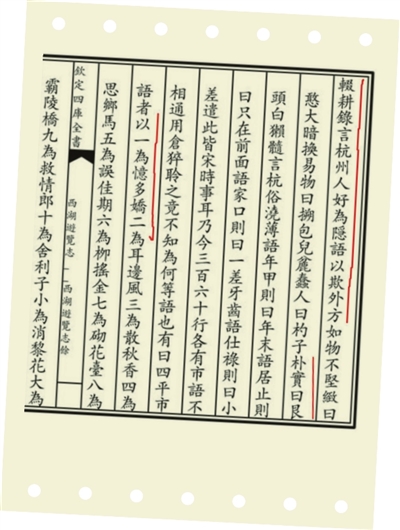 輟耕錄言杭州人好為隱語以欺外方如物不堅緻曰
憨大暗換易物曰搠包兒麄蠢人曰杓子朴實曰艮
頭白獺髓言杭俗澆薄語年甲則曰年末語居止則
曰只在前面語家口則曰一差牙齒語仕祿則曰小
差遣此皆宋時事耳乃今三百六十行各有市語不
相通用倉猝聆之竟不知為何等語也有曰四平市
語者以一為憶多嬌二為耳邊風三為散秋香四為
思鄉馬五為誤佳期六為柳搖金七為砌花臺八為
欽定四庫全書
西湖遊覽志--西湖遊覽志餘
霸陵橋九為救情郎十為舍利子小為消黎花大為